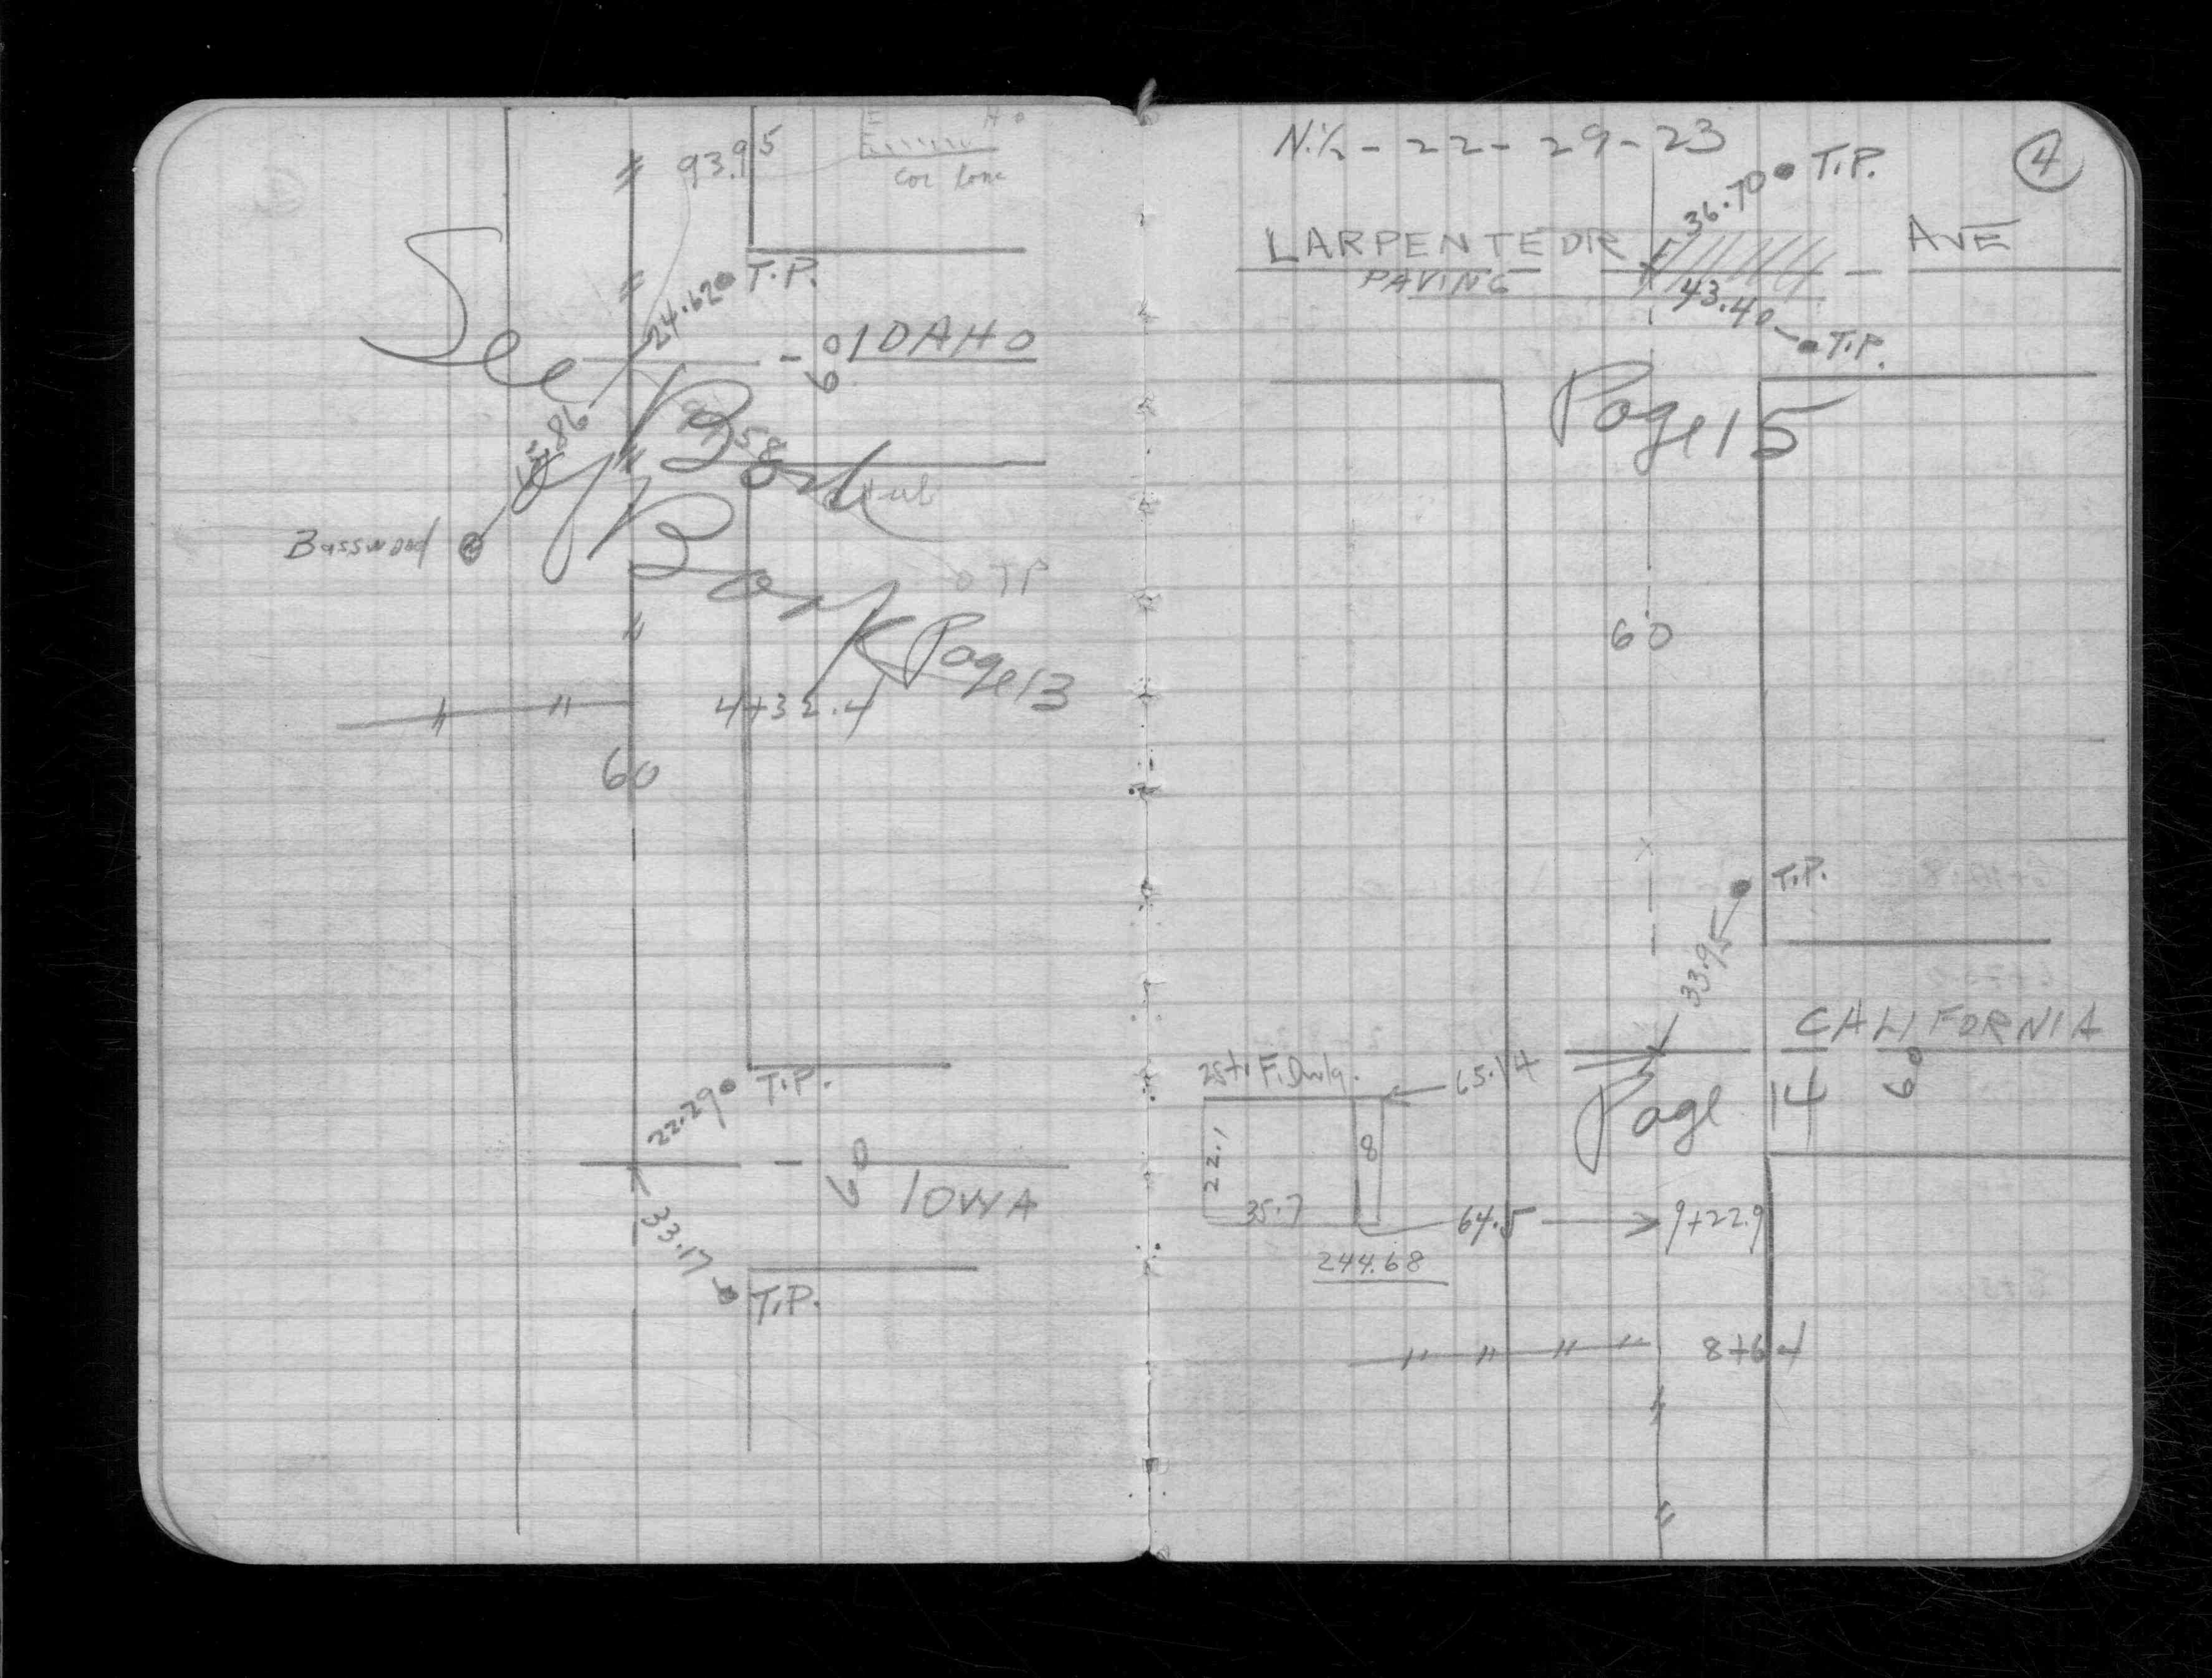 93.95
Cor Conc
24.62 T.P.
IDAHO
60
See
Book
Book Page 13
Basswood
TP
4+32.4
60
22.29 T.P.
60
IOWA
33.17
T.P.
N.½ - 22 - 29 - 23
4
36.70 T.P.
LARPENTEUR AVE
PAVING
43.40
T.P.
Page 15
60
T.P.
33.95
CALIFORNIA
60
Page 14
2 St. F. Dwlg.
65.14
22.1
8
35.7
64.5
9+22.9
244.68
8+64